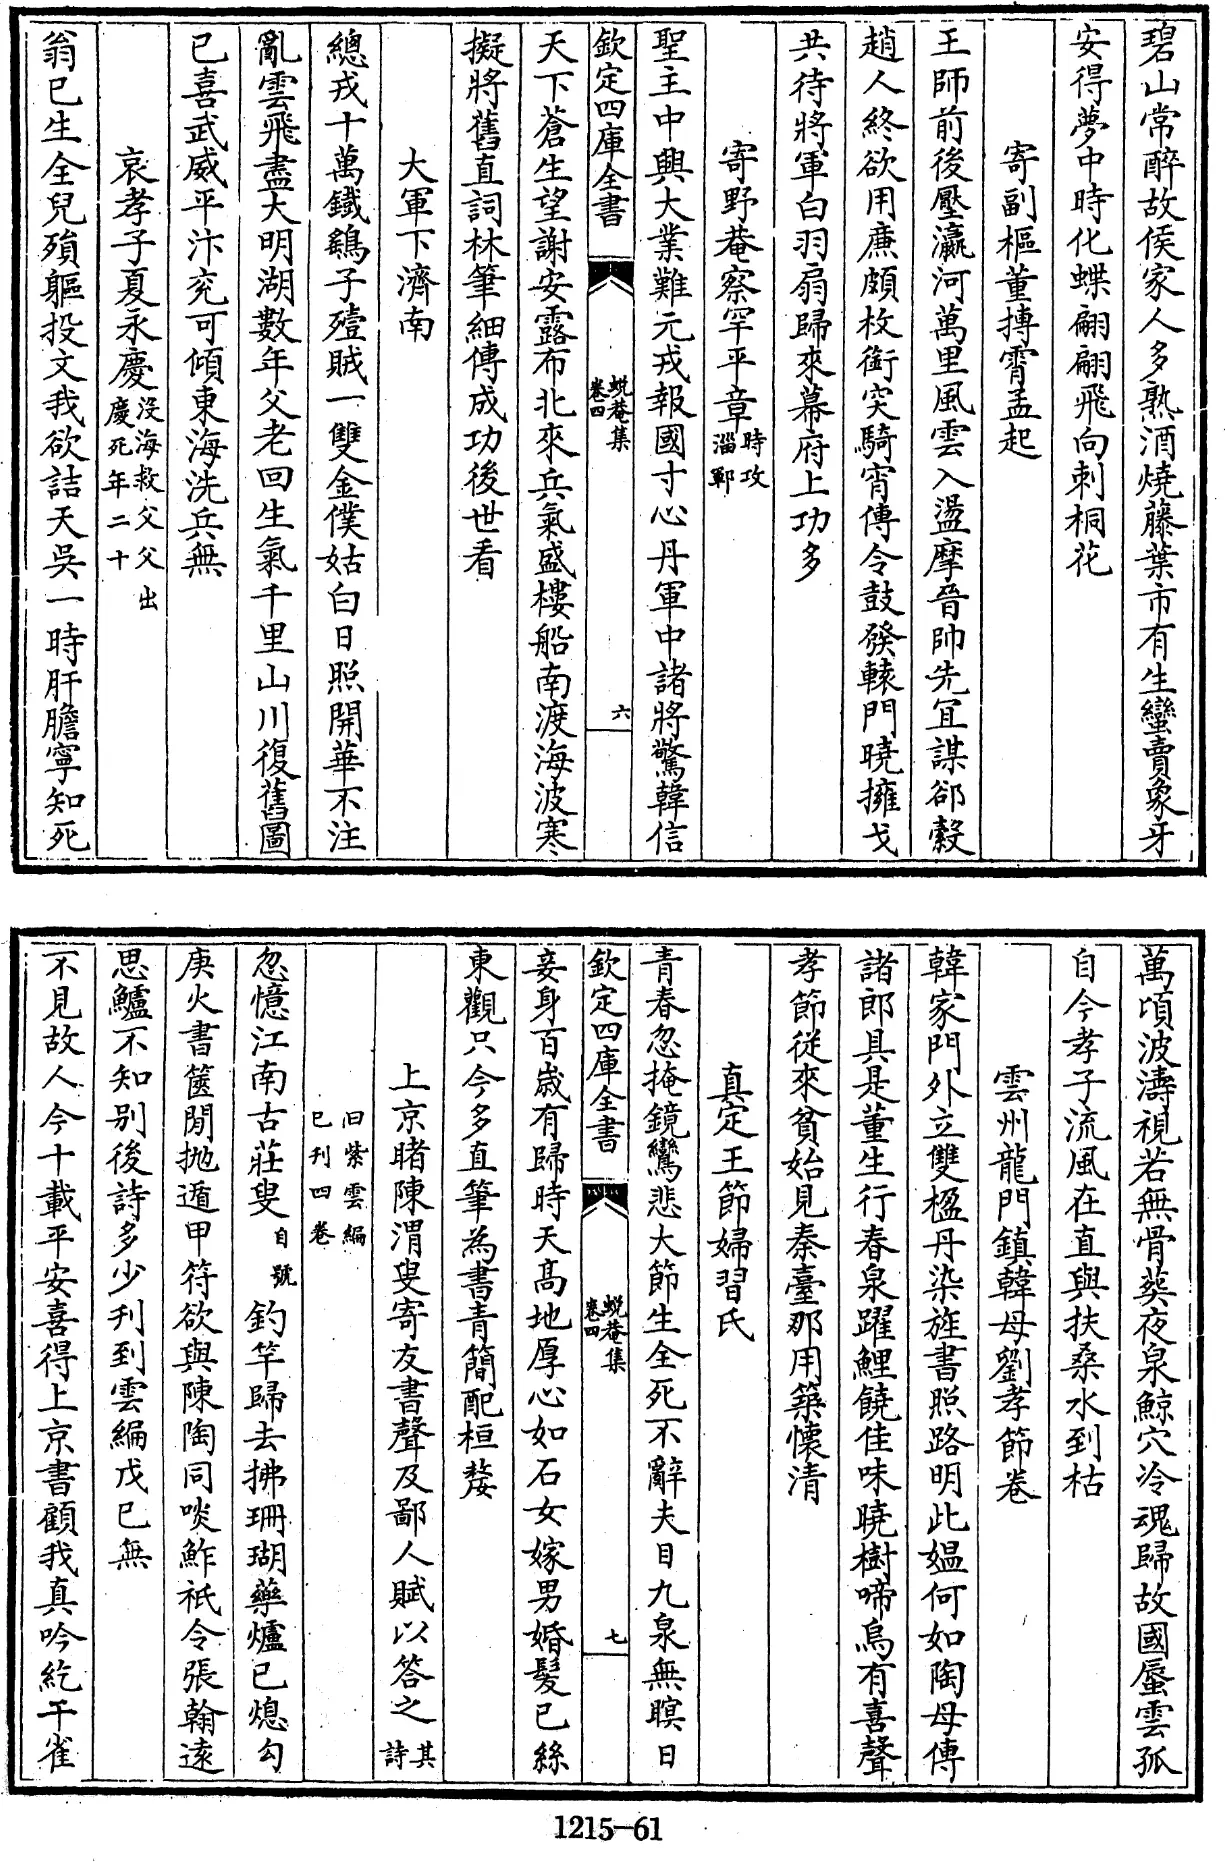 碧山常醉故侯家人多熟酒燒藤葉市有生蠻賣象牙
安得夢中時化蝶翩翩飛向刺桐花
寄副樞董摶霄孟起
王師前後壓瀛河萬里風雲入盪摩晉帥先宜謀郤縠
趙人終欲用亷頗枚銜突騎宵傳令鼓發轅門曉擁戈
共待將軍白羽扇歸來幕府上功多
寄野菴察罕平章時攻淄鄆
聖主中興大業難元戎報國寸心丹軍中諸將驚韓信
欽定四庫全書 蛻菴集卷四 六
天下蒼生望謝安露布北來兵氣盛樓船南渡海波寒
擬將舊直詞林筆細傳成功後世看
大軍下濟南
總戎十萬鐵鷂子殪賊一雙金僕姑白日照開華不注
亂雲飛盡大明湖數年父老回生氣千里山川復舊圖
已喜武威平汴兖可傾東海洗兵無
哀孝子夏永慶没海救父父出慶死年二十
翁已生全兒殞軀投文我欲詰天吳一時肝膽寧知死
萬頃波濤視若無骨葬夜泉鯨穴冷魂歸故國蜃雲孤
自今孝子流風在直與扶桑水到枯
雲州龍門鎮韓母劉孝節卷
韓家門外立雙楹丹染旌書照路明此媪何如陶母傳
諸郎具是董生行春泉躍鯉饒佳味曉樹啼烏有喜聲
孝節從來貧始見秦臺那用築懷清
真定王節婦習氏
青春忽掩鏡鸞悲大節生全死不辭夫目九泉無暝日
欽定四庫全書 蛻菴集卷四 七
妾身百歲有歸時天髙地厚心如石女嫁男婚髮已絲
東觀只今多直筆為書青簡配桓嫠
上京睹陳渭叟寄友書聲及鄙人賦以答之其詩
曰紫雲編已刋四卷
忽憶江南古莊叟自號釣竿歸去拂珊瑚藥爐已熄勾
庚火書篋閒抛遁甲符欲與陳陶同啖鮓祇令張翰遠
思鱸不知别後詩多少刋到雲編戊已無
不見故人今十載平安喜得上京書顧我真吟紇干雀
1215-61